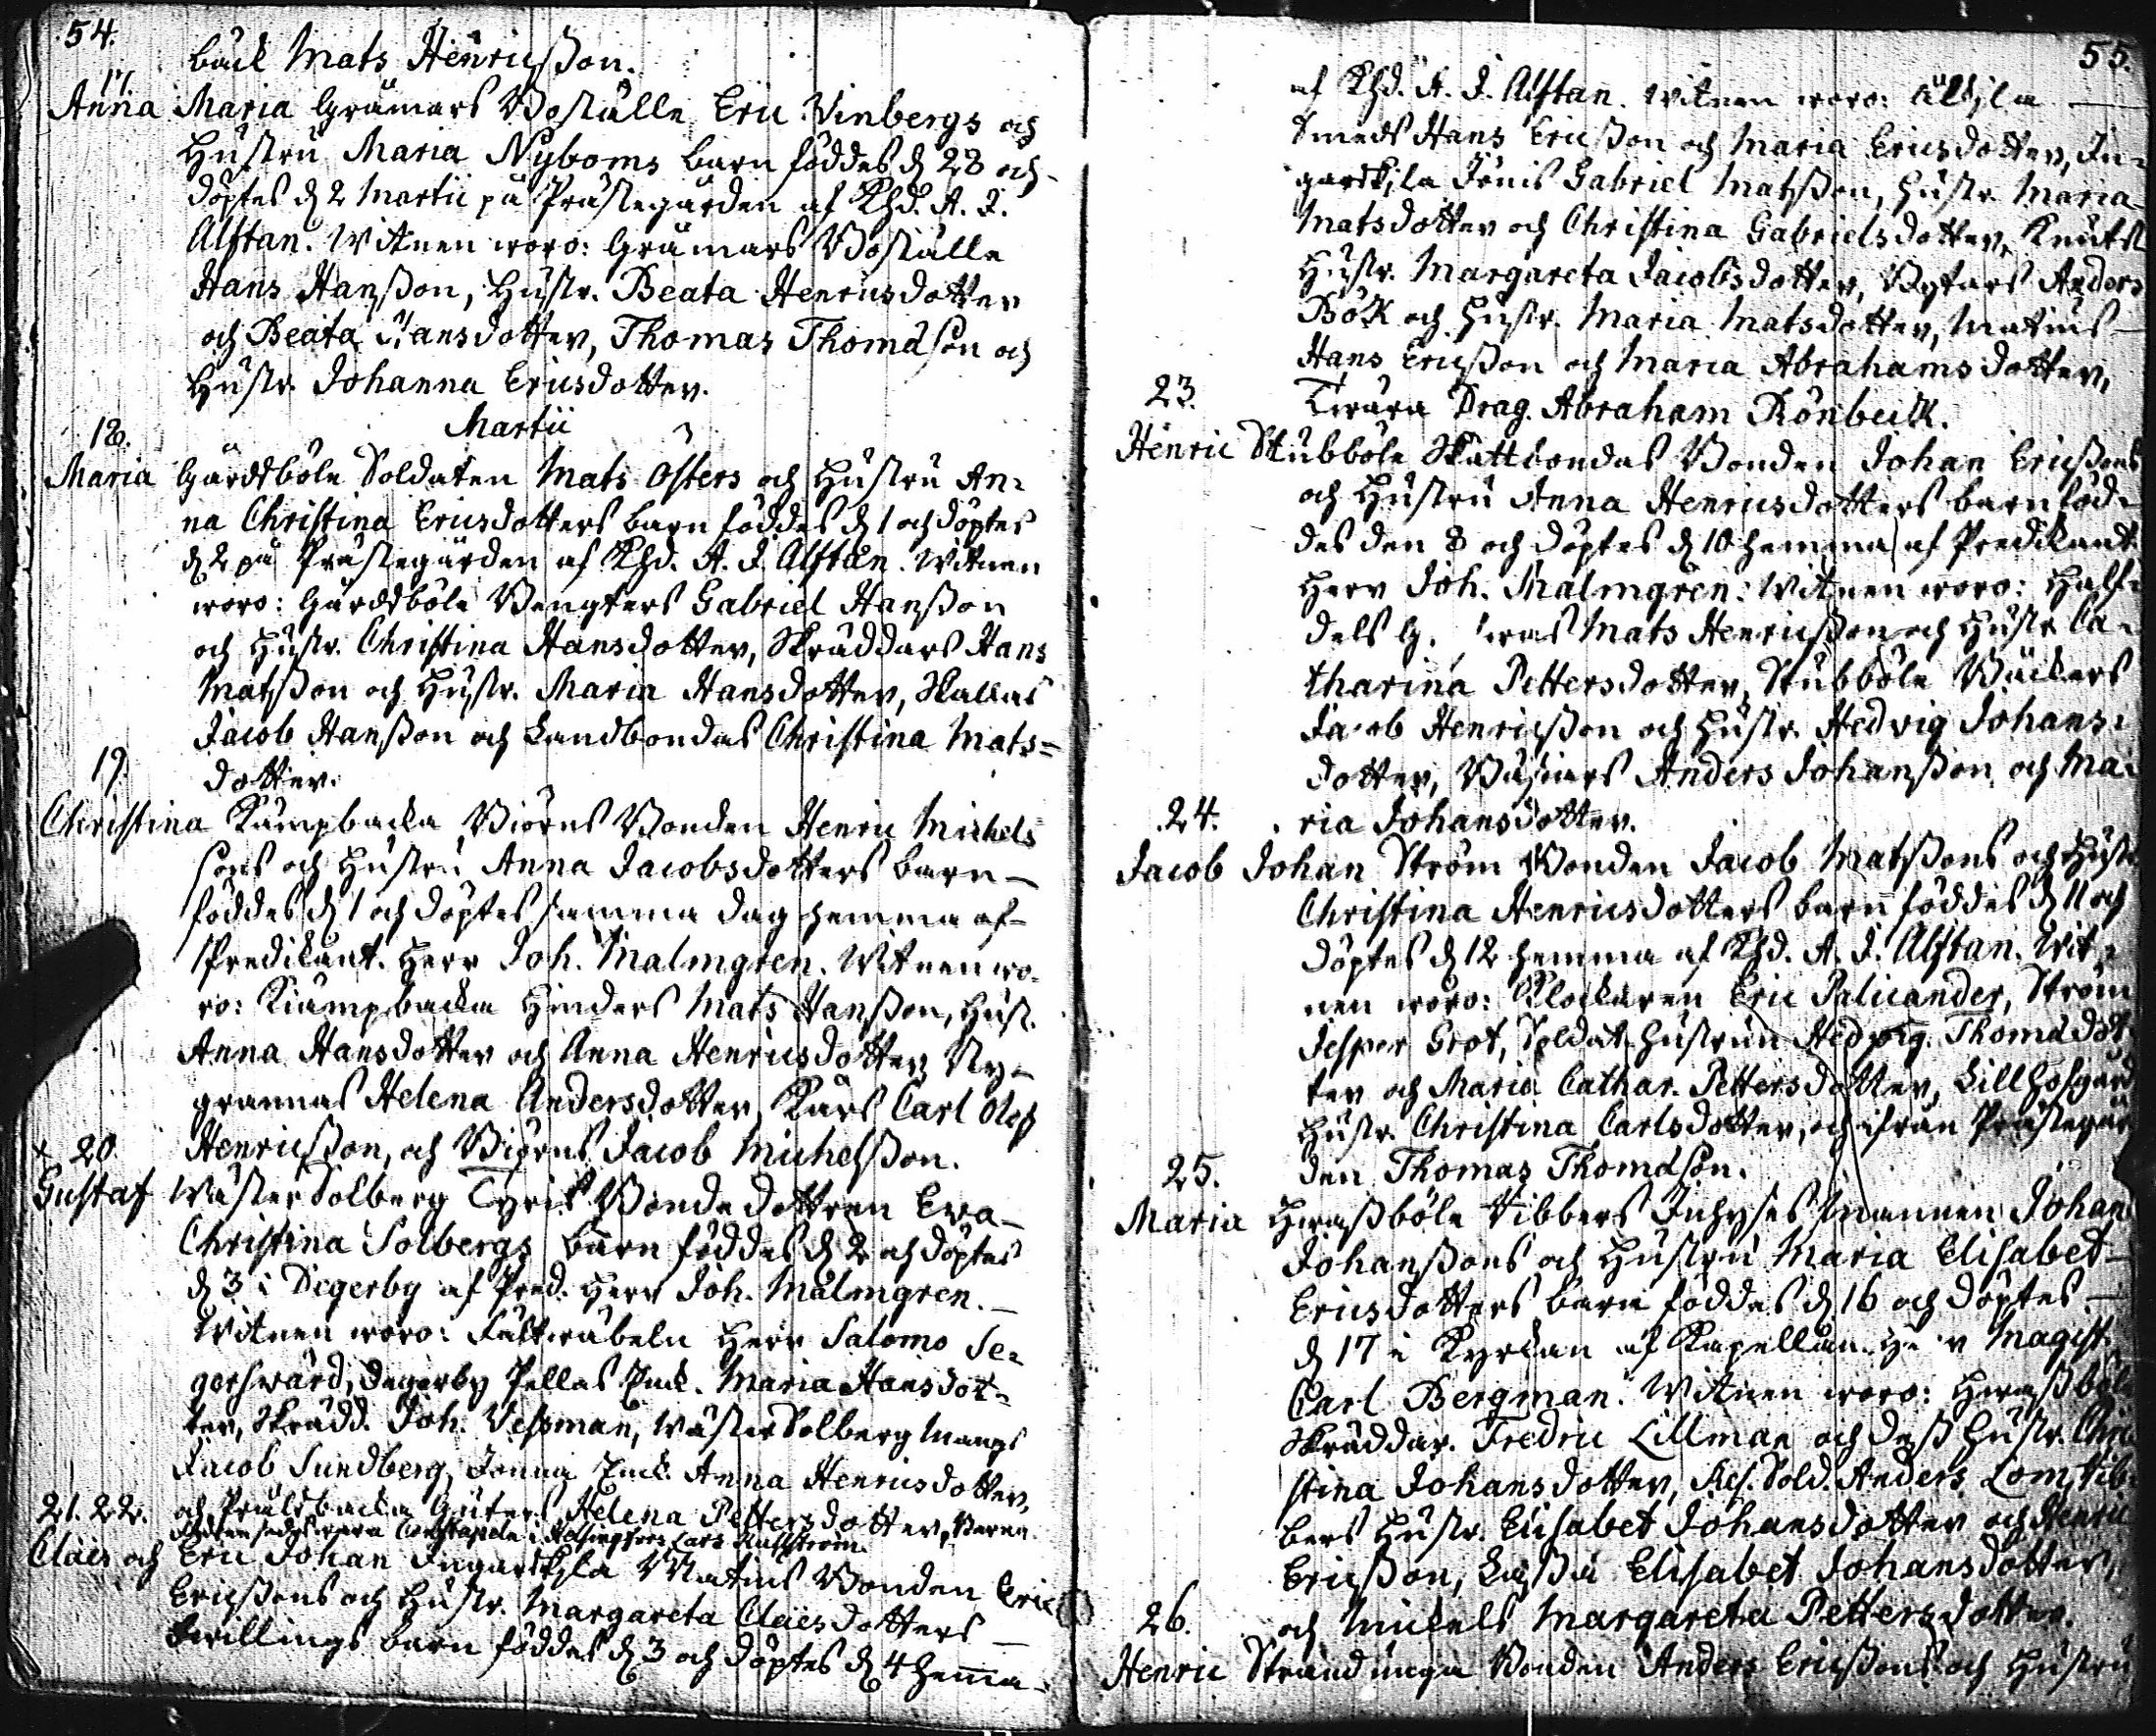 54.
bäck Mats Henricsson.
17.
Anna Maria Gråmars Boställe Eric Vinbergs och
Hustru Maria Nyboms barn föddes d. 28 och
döptes d. 2 Martii på Prästegården af Khd. A. J.
Alftan. Witnen woro: Gråmars Boställe
Hans Hansson, Hustr. Beata Henricsdotter
och Beata Hansdotter, Thomas Thomasson och
Hustr. Johanna Ericsdotter.
Martii
18.
Maria Gårdsböle Soldaten Mats Östers och Hustru An=
na Christina Ericsdotters barn föddes d. 1 och döptes
d. 2 på Prästegården af Khd. A. J. Alftan. Witnen
woro: Gårdsböle Bengters Gabriel Hansson
och Hustr. Christina Hansdotter, Skräddars Hans
Matsson och Hustr. Maria Hansdotter, Skallas
Jacob Hansson och Landbondas Christina Mats=
dotter.
19.
Christina Kämpbacka Björns Bonden Henric Michels
sons och Hustru Anna Jacobsdotters barn
föddes d. 1 och döptes samma dag hemma af
Predikant. Herr Joh. Malmgren. Witnen wo=
ro: Kiämpbacka Hinders Mats Hansson, Hust.
Anna Hansdotter och Anna Henricsdotter, Ny=
grannas Helena Andersdotter, Kärs Carl Olof
Henricsson, och Björns Jacob Michelsson.
x 20.
Gustaf Wäster Solberg Tyris Bonde dottren Ewa
Christina Solbergs barn föddes d. 2 och döptes
d. 3 i Degerby af Pred. Herr Joh. Malmgren.
Witnen woro: Fältwäbeln Herr Salomo Se=
gerswärd, Degerby Pellas Enck. Maria Hansdot=
ter, Skrädd. Joh. Vessman, Wäster Solberg Mangs
Jacob Sundberg, Jonna Enck. Anna Henricsdotter,
och Präsbacka Helena Pettersdotter,
Constapeln i Helsingfors Lars
21. 22.
Claes och Eric Johan Ingarskila Matius Bonden Eric
Ericssons och Hustr. Margareta Claesdotters
Twillings barn föddes d. 3 och döptes d. 4 hemma
55.
af Khd. A. J. Alftan. Witnen woro:
Smeds Hans Ericsson och Maria Ericsdotter, In=
garskila Jönis Gabriel Matsson, Hustr. Maria
Matsdotter och Christina Gabrielsdotter, Knuts
Hustr. Margareta Jacobsdotter, Bytars Anders
Bök och Hustr. Maria Matsdotter, Matius
Hans Ericsson och Maria Abrahamsdotter,
Drag. Abraham Rönbeck.
23.
Henric Stubböle Skattbondas Bonden Johan Ericssons
och Hustru Anna Henricsdotters barn föd=
des den 8 och döptes d. 10 hemma af Predikant.
Herr Joh. Malmgren. Witnen woro: Half=
dels Mats Henricsson och Hustr. Ca=
tharina Pettersdotter, Stubböle Bäckers
Jacob Henricsson och Hustr. Hedvig Johans=
dotter, Anders Johansson och Ma=
ria Johansdotter.
24.
Jacob Johan Ström Bonden Jacob Matssons och Hustr.
Christina Henricsdotters barn föddes d. 11 och
döptes d. 12 hemma af Khd. A. J. Alftan. Wit=
nen woro: Klockaren Eric Palicander, Ström
Jesper Grot, Soldat Hustrun Hedvig Thomasdot
ter och Maria Cathar. Pettersdotter, Lillhofgård
Hustr. Christina Carlsdotter, och ifrån Prästegår
den Thomas Thomasson.
25.
Maria Hwassböle Vibbers Inhyses mannen Johan
Johanssons och Hustru Maria Elisabet
Ericsdotters barn föddes d. 16 och döptes
d. 17 i Kyrkan af Kapellan. Herr Magist.
Carl Bergman. Witnen woro: Hwassböle
Skräddar. Fredric Lillman och dess Hustr. Chri
stina Johansdotter, Res. Sold. Anders Lom, Vib=
bers Hustr. Elisabet Johansdotter och Henric
Ericsson, Elisabet Johansdotter,
och Mickels Margareta Pettersdotter.
26.
Henric Stranduga Bonden Anders Ericssons och Hustru